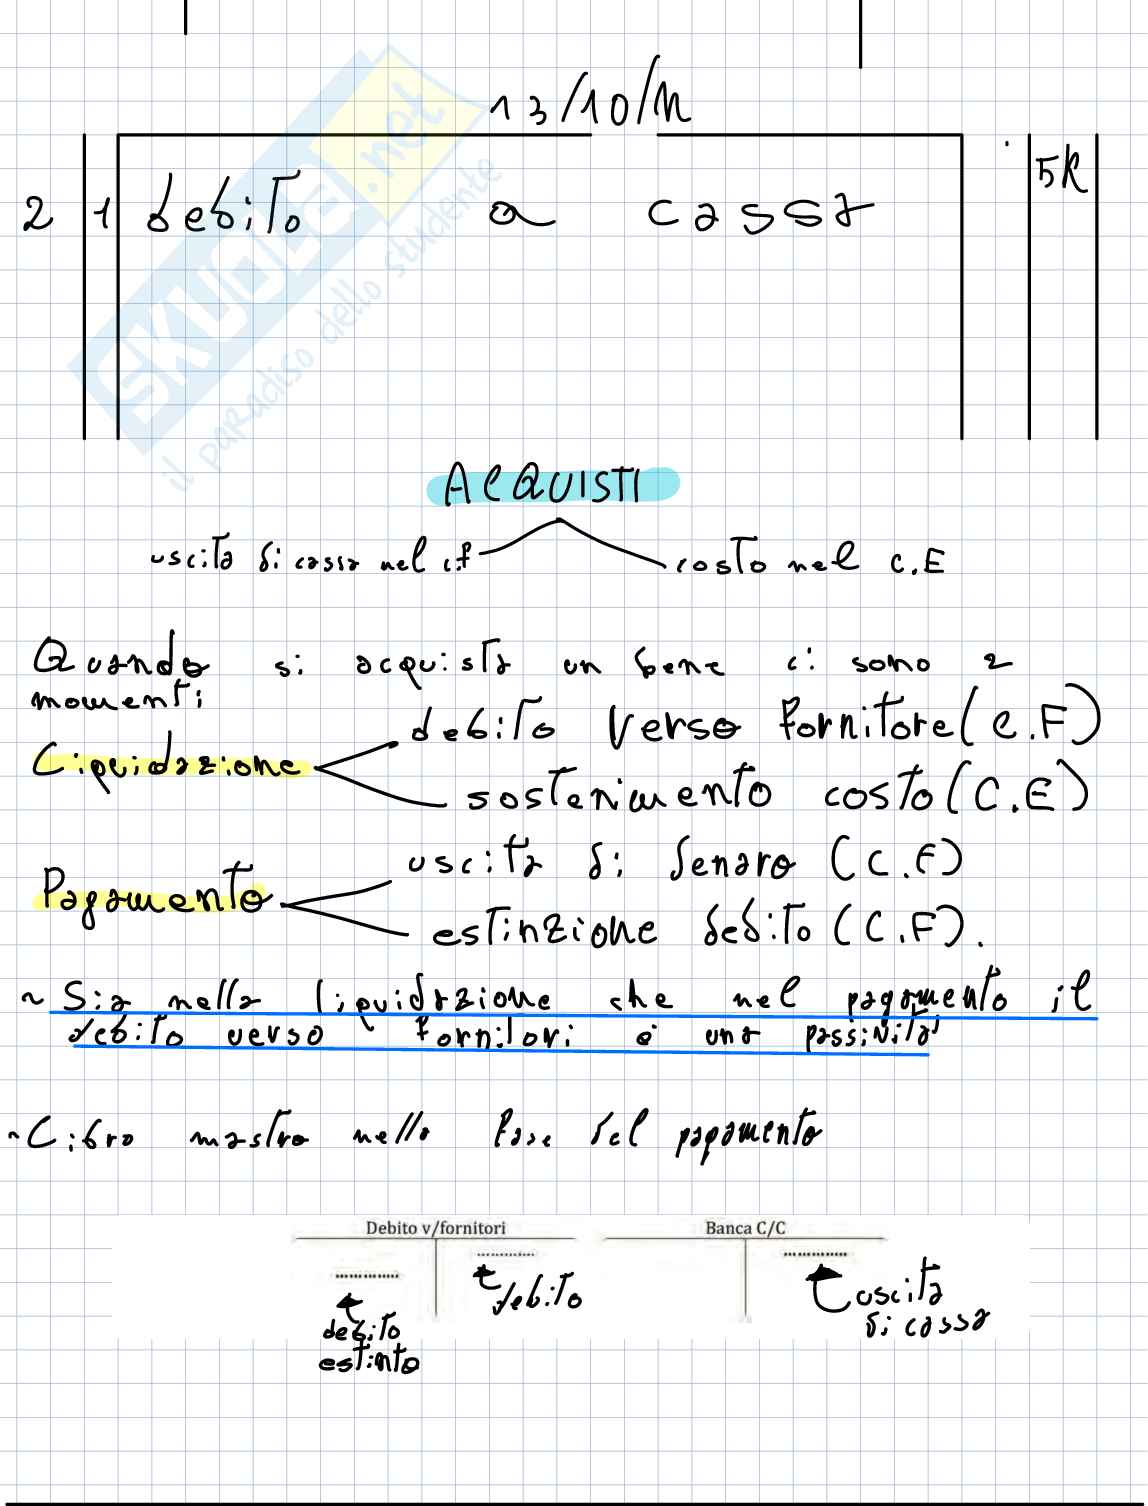 13/10/N
2 1 debito a cassa 5k
SKUOLA.net
il paradiso dello studente
ACQUISTI
uscita di cassa nel c.f costo nel C.E
Quando si acquista un bene ci sono 2
momenti
debito verso fornitore (C.F)
Liquidazione
sostenimento costo (C.E)
uscita di denaro (C.F)
Pagamento
estinzione debito (C.F).
~ Sia nella liquidazione che nel pagamento il
debito verso fornitori è una passività
~ Libro mastro nella fase del pagamento
Debito v/fornitori Banca C/C
debito
uscita
di cassa
debito
estinto